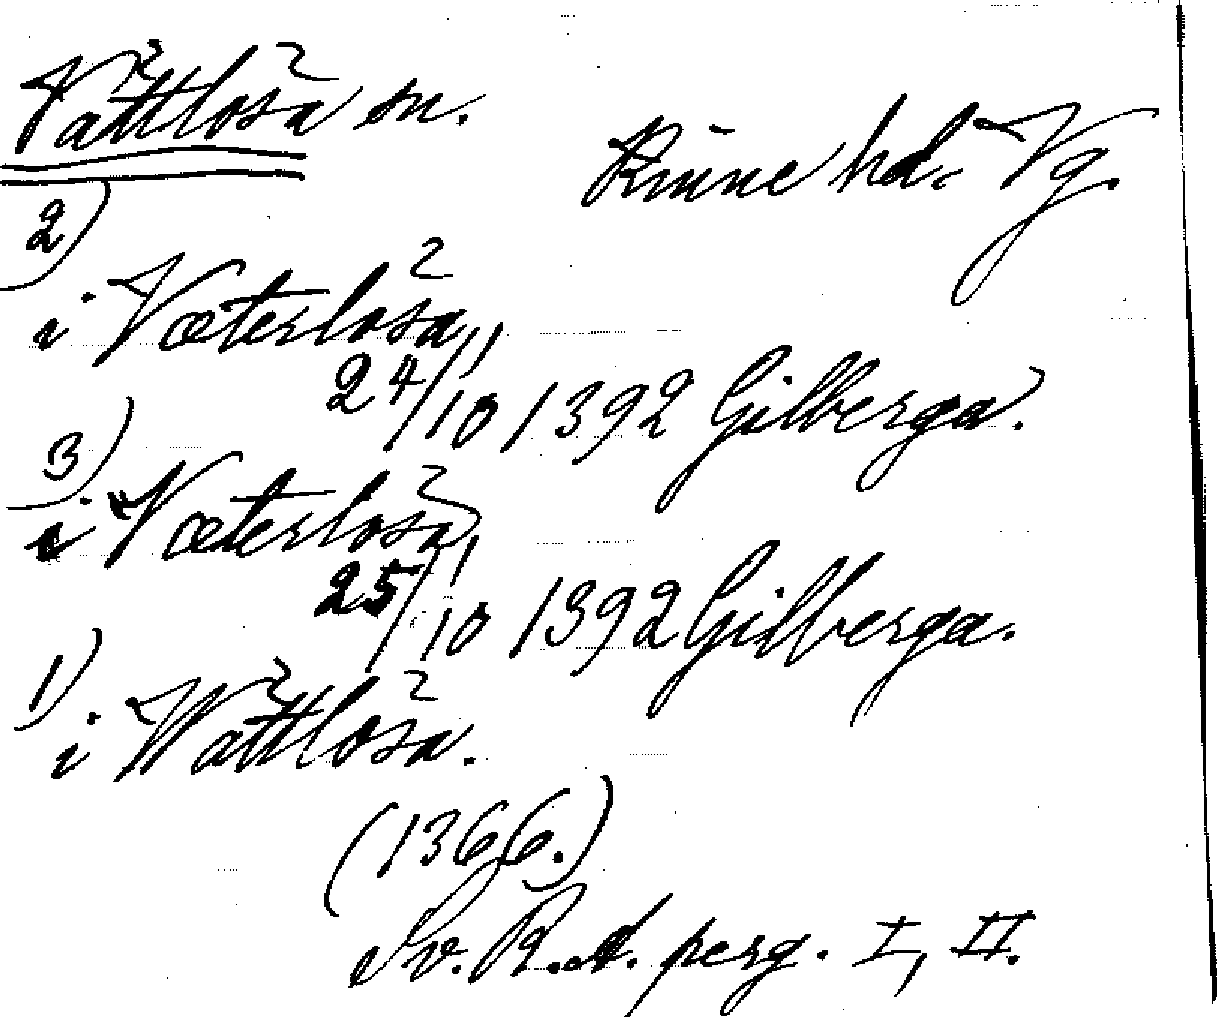 Vättlösa sn.
Kinne hd. Vg.
2)
i Væterlösa,
24/10 1392 Gilberga.
3)
i Væterlösa,
25/10 1392 Gilberga.
1)
i Wättlösa.
(1366.)
Sv. R. A. perg. I, II.